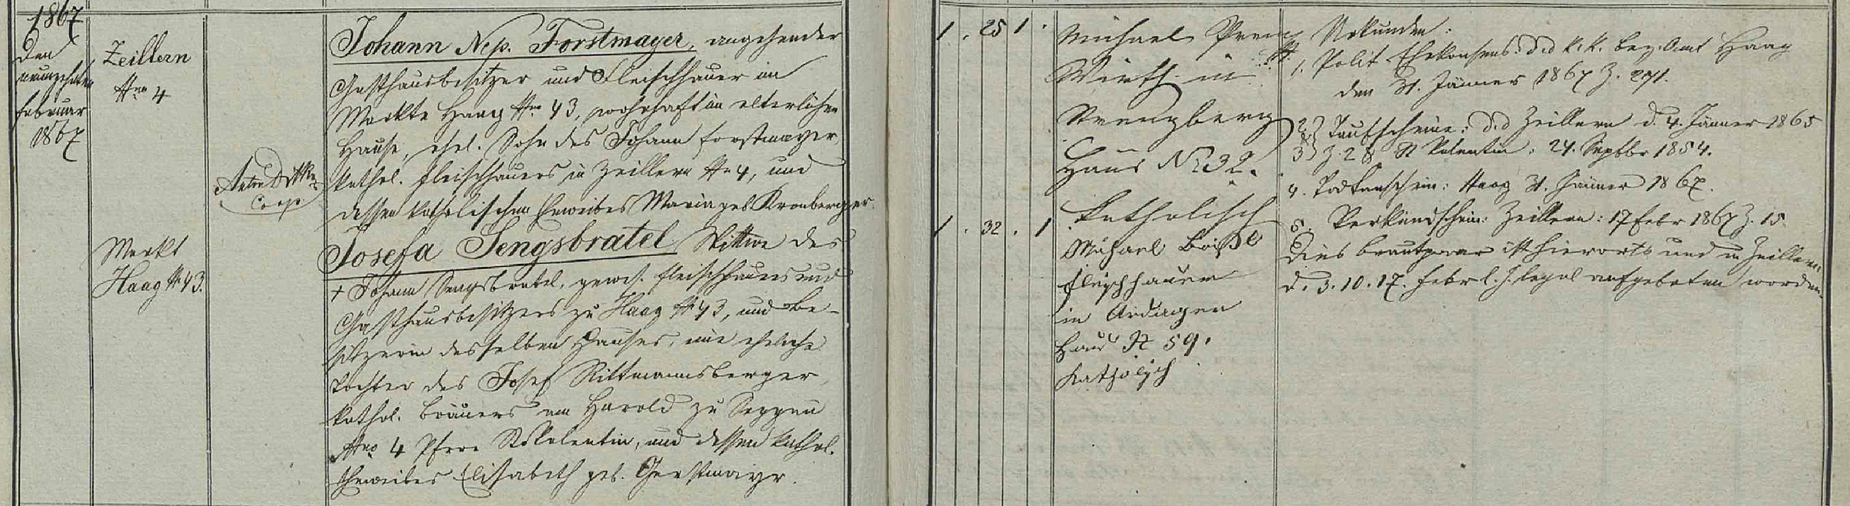 1867
Den
neunzehnten
Februar
1867
Zeillern
No 4
Markt
Haag No 43.
Anton
Coop
Johann Nep. Forstmayer, angehender
Gasthausbesitzer und Fleischhauer im
Markte Haag No 43, wohnhaft im elterlichen
Hause, ehel. Sohn des Johann Forstmayer
kathol. Fleischhauers in Zeillern No 4, und
dessen katholischen Eheweibes Maria geb. Kronberger.
Josefa Sengsbratel Wittwe des
† Johann Sengsbratel, gewes. Fleischhauers und
Gasthausbesitzers zu Haag No 43, und Be-
sitzerin desselben Hauses, eine eheliche
Tochter des Josef Rittmannsberger,
kathol. Bräuers am Harold zu
No 4 Pfarr St. Valentin, und dessen kathol.
Eheweibes Elisabeth geb. Gerstmayr.
1 . 25 1 .
1 . 32 . 1
Michael
Wirth in
Strengberg
Haus No 32.
Katholisch
Michael
Fleischhauer
in Ardagger
Haus N 59.
Katholisch
Urkunden:
1, Polit. Ehekonsens: d.d. k.k. Bez. Amt Haag
den 31. Jänner 1867 Z. 271.
2, Taufscheine: d.d. Zeillern d. 4. Jänner 1865
3, Z. 28 St Valentin: 24. Septbr 1854.
4. Todtenschein: Haag 31. Jänner 1867.
5. Verkündschein: Zeillern: 17 Febr 1867 Z. 15.
Dies Brautpaar ist hierorts und in Zeillern
d. 3. 10. 17. Febr l. J. legal aufgeboten worden.